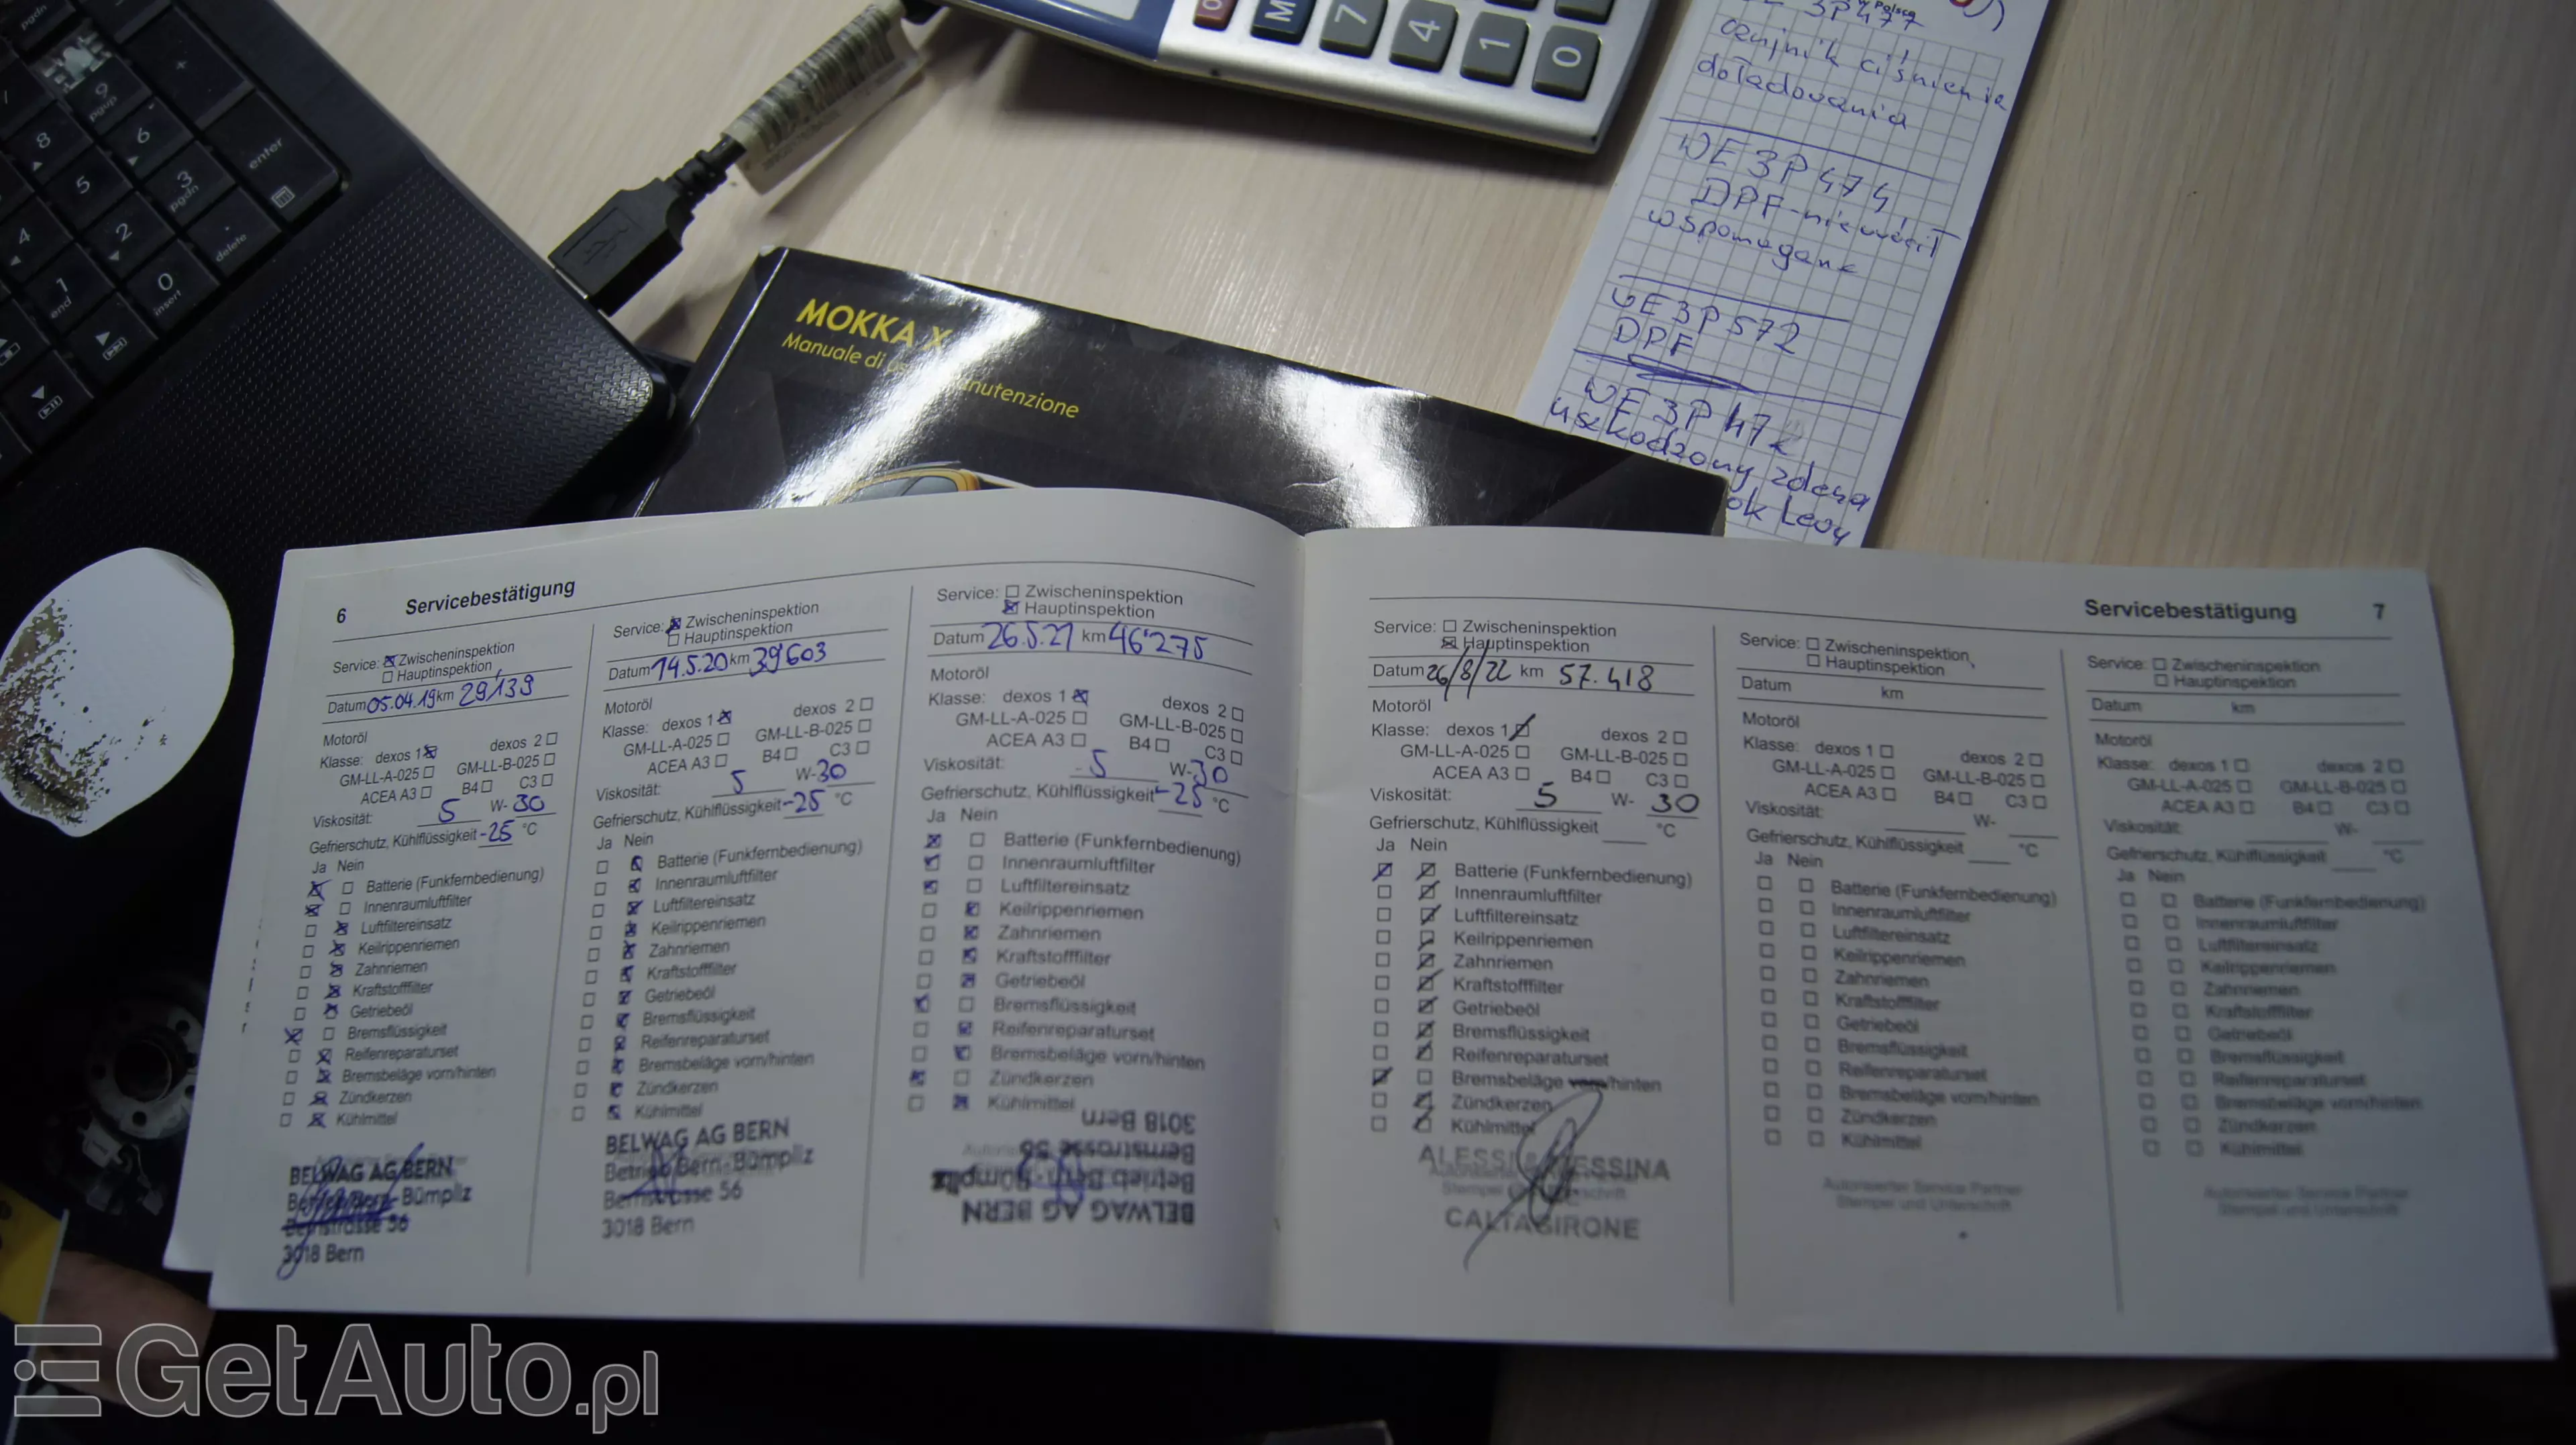 MOKKA X
Manuale di
nutenzione
czujnik ciśnienia
doładowania
WE 3P474
DPF-nie
wspomagane
WE 3P572
DPF
WE 3P472
uszkodzony
ok Lewy
9
pgup
8
6
enter
5
3
pgdn
4
2
delete
1
end
0
insert
M
7
4
1
0
6 Servicebestätigung
Service: ☒ Zwischeninspektion
☐ Hauptinspektion
Datum 05.04.19 km 29'139
Motoröl
Klasse: dexos 1 ☒ dexos 2 ☐
GM-LL-A-025 ☐ GM-LL-B-025 ☐
ACEA A3 ☐ B4 ☐ C3 ☐
Viskosität: 5 W- 30
Gefrierschutz, Kühlflüssigkeit -25 °C
Ja Nein
☒ ☐ Batterie (Funkfernbedienung)
☒ ☐ Innenraumluftfilter
☐ ☒ Luftfiltereinsatz
☐ ☒ Keilrippenriemen
☐ ☒ Zahnriemen
☐ ☒ Kraftstofffilter
☐ ☒ Getriebeöl
☒ ☐ Bremsflüssigkeit
☐ ☒ Reifenreparaturset
☐ ☒ Bremsbeläge vorn/hinten
☐ ☒ Zündkerzen
☐ ☒ Kühlmittel
BELWAG AG BERN
Betrieb Bern-Bümpliz
Bernstrasse 56
3018 Bern
Service: ☒ Zwischeninspektion
☐ Hauptinspektion
Datum 14.5.20 km 39603
Motoröl
Klasse: dexos 1 ☒ dexos 2 ☐
GM-LL-A-025 ☐ GM-LL-B-025 ☐
ACEA A3 ☐ B4 ☐ C3 ☐
Viskosität: 5 W-30
Gefrierschutz, Kühlflüssigkeit -25 °C
Ja Nein
☐ ☒ Batterie (Funkfernbedienung)
☐ ☒ Innenraumluftfilter
☐ ☒ Luftfiltereinsatz
☐ ☒ Keilrippenriemen
☐ ☒ Zahnriemen
☐ ☒ Kraftstofffilter
☐ ☒ Getriebeöl
☐ ☒ Bremsflüssigkeit
☐ ☒ Reifenreparaturset
☐ ☒ Bremsbeläge vorn/hinten
☐ ☒ Zündkerzen
☐ ☒ Kühlmittel
BELWAG AG BERN
Betrieb Bern-Bümpliz
Bernstrasse 56
3018 Bern
Service: ☐ Zwischeninspektion
☒ Hauptinspektion
Datum 26.5.21 km 46'275
Motoröl
Klasse: dexos 1 ☒ dexos 2 ☐
GM-LL-A-025 ☐ GM-LL-B-025 ☐
ACEA A3 ☐ B4 ☐ C3 ☐
Viskosität: 5 W-30
Gefrierschutz, Kühlflüssigkeit -25 °C
Ja Nein
☒ ☐ Batterie (Funkfernbedienung)
☒ ☐ Innenraumluftfilter
☒ ☐ Luftfiltereinsatz
☐ ☒ Keilrippenriemen
☐ ☒ Zahnriemen
☐ ☒ Kraftstofffilter
☐ ☒ Getriebeöl
☒ ☐ Bremsflüssigkeit
☐ ☒ Reifenreparaturset
☐ ☒ Bremsbeläge vorn/hinten
☒ ☐ Zündkerzen
☐ ☒ Kühlmittel
BELWAG AG BERN
Betrieb Bern-Bümpliz
Bernstrasse 56
3018 Bern
Servicebestätigung 7
Service: ☐ Zwischeninspektion
☒ Hauptinspektion
Datum 26/8/22 km 57.418
Motoröl
Klasse: dexos 1 ☒ dexos 2 ☐
GM-LL-A-025 ☐ GM-LL-B-025 ☐
ACEA A3 ☐ B4 ☐ C3 ☐
Viskosität: 5 W- 30
Gefrierschutz, Kühlflüssigkeit °C
Ja Nein
☒ ☒ Batterie (Funkfernbedienung)
☐ ☒ Innenraumluftfilter
☐ ☒ Luftfiltereinsatz
☐ ☒ Keilrippenriemen
☐ ☒ Zahnriemen
☐ ☒ Kraftstofffilter
☐ ☒ Getriebeöl
☐ ☒ Bremsflüssigkeit
☐ ☒ Reifenreparaturset
☒ ☐ Bremsbeläge vorn/hinten
☐ ☒ Zündkerzen
☐ ☒ Kühlmittel
Stempel
CALTAGIRONE
Service: ☐ Zwischeninspektion
☐ Hauptinspektion
Datum km
Motoröl
Klasse: dexos 1 ☐ dexos 2 ☐
GM-LL-A-025 ☐ GM-LL-B-025 ☐
ACEA A3 ☐ B4 ☐ C3 ☐
Viskosität: W-
Gefrierschutz, Kühlflüssigkeit °C
Ja Nein
☐ ☐ Batterie (Funkfernbedienung)
☐ ☐ Innenraumluftfilter
☐ ☐ Luftfiltereinsatz
☐ ☐ Keilrippenriemen
☐ ☐ Zahnriemen
☐ ☐ Kraftstofffilter
☐ ☐ Getriebeöl
☐ ☐ Bremsflüssigkeit
☐ ☐ Reifenreparaturset
☐ ☐ Bremsbeläge vorn/hinten
☐ ☐ Zündkerzen
☐ ☐ Kühlmittel
Autorisierter Service Partner
Stempel und Unterschrift
Service: ☐ Zwischeninspektion
☐ Hauptinspektion
Datum km
Motoröl
Klasse: dexos 1 ☐ dexos 2 ☐
GM-LL-A-025 ☐ GM-LL-B-025 ☐
ACEA A3 ☐ B4 ☐ C3 ☐
Viskosität: W-
Gefrierschutz, Kühlflüssigkeit °C
Ja Nein
☐ ☐ Batterie (Funkfernbedienung)
☐ ☐ Innenraumluftfilter
☐ ☐ Luftfiltereinsatz
☐ ☐ Keilrippenriemen
☐ ☐ Zahnriemen
☐ ☐ Kraftstofffilter
☐ ☐ Getriebeöl
☐ ☐ Bremsflüssigkeit
☐ ☐ Reifenreparaturset
☐ ☐ Bremsbeläge vorn/hinten
☐ ☐ Zündkerzen
☐ ☐ Kühlmittel
Autorisierter Service Partner
Stempel und Unterschrift
GetAuto.pl